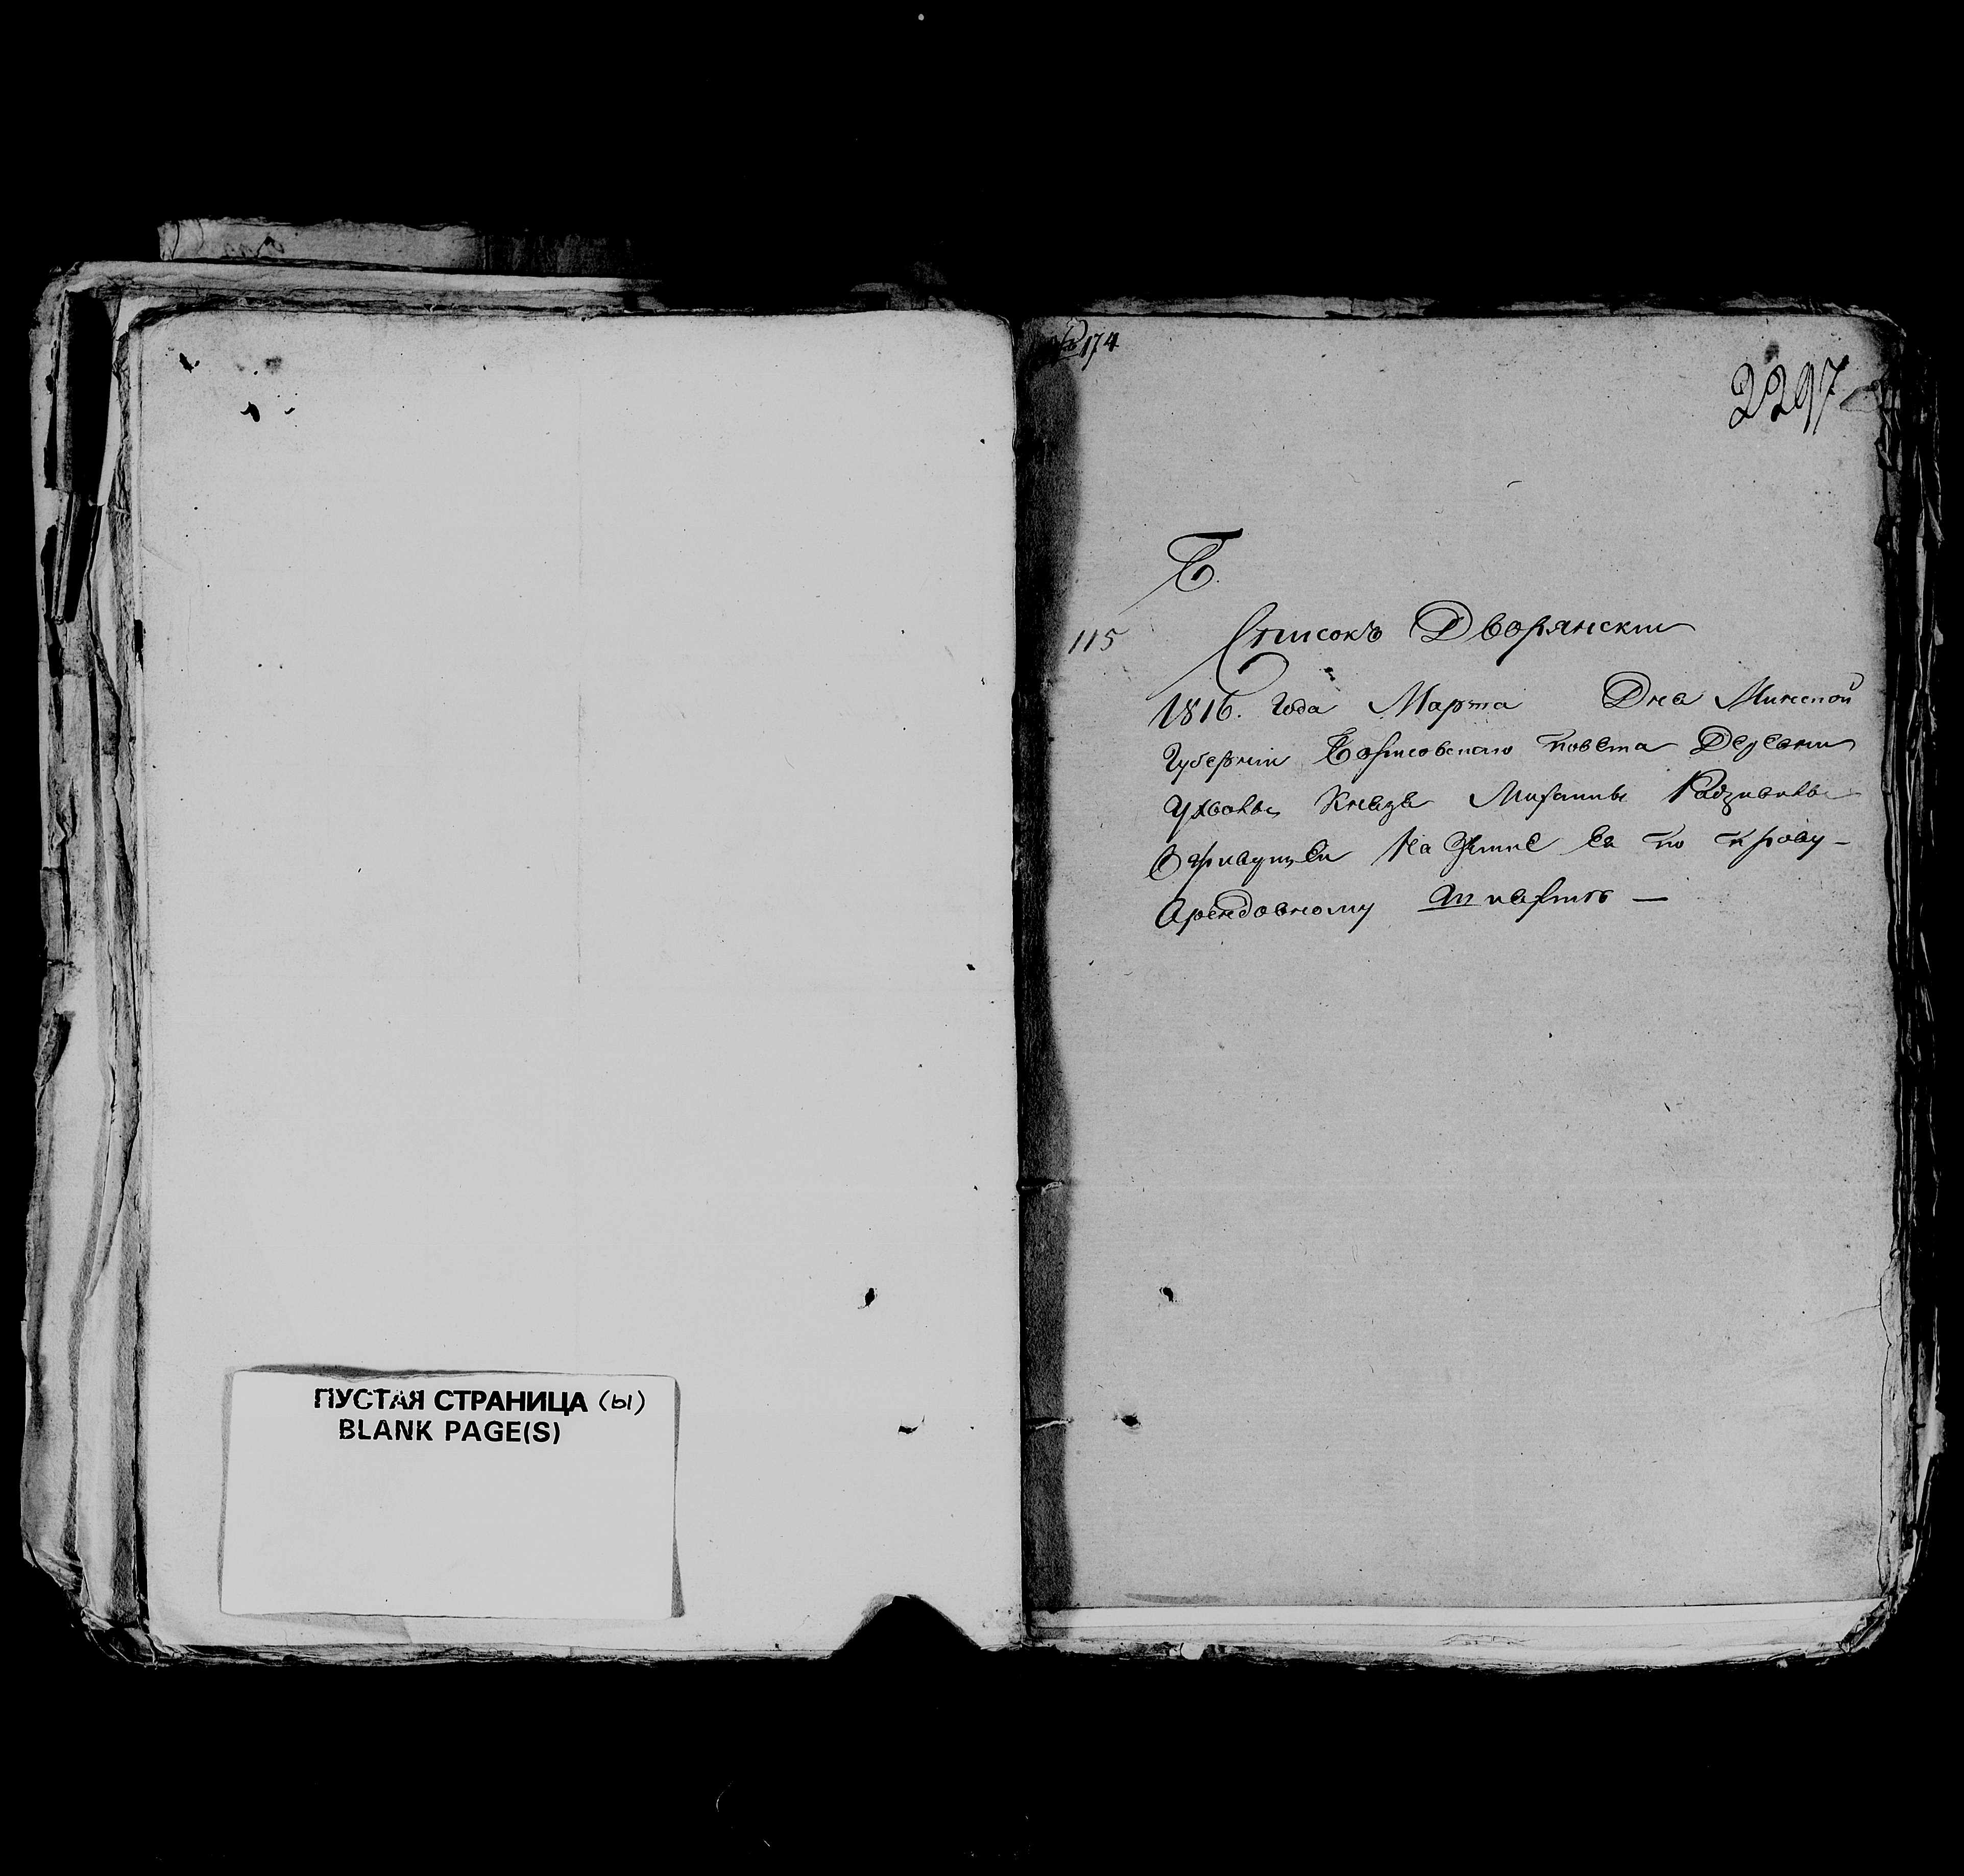 ПУСТАЯ СТРАНИЦА (ы)
BLANK PAGE(S)
№ 174
2297
Б.
115
Списокъ Дворянскии
1816. Года Марта Дня Минской
Губернiи Борисовскаго повета Деревни
Ухвалы Князя Радзивила
На Земле Ея по праву
Арендовному